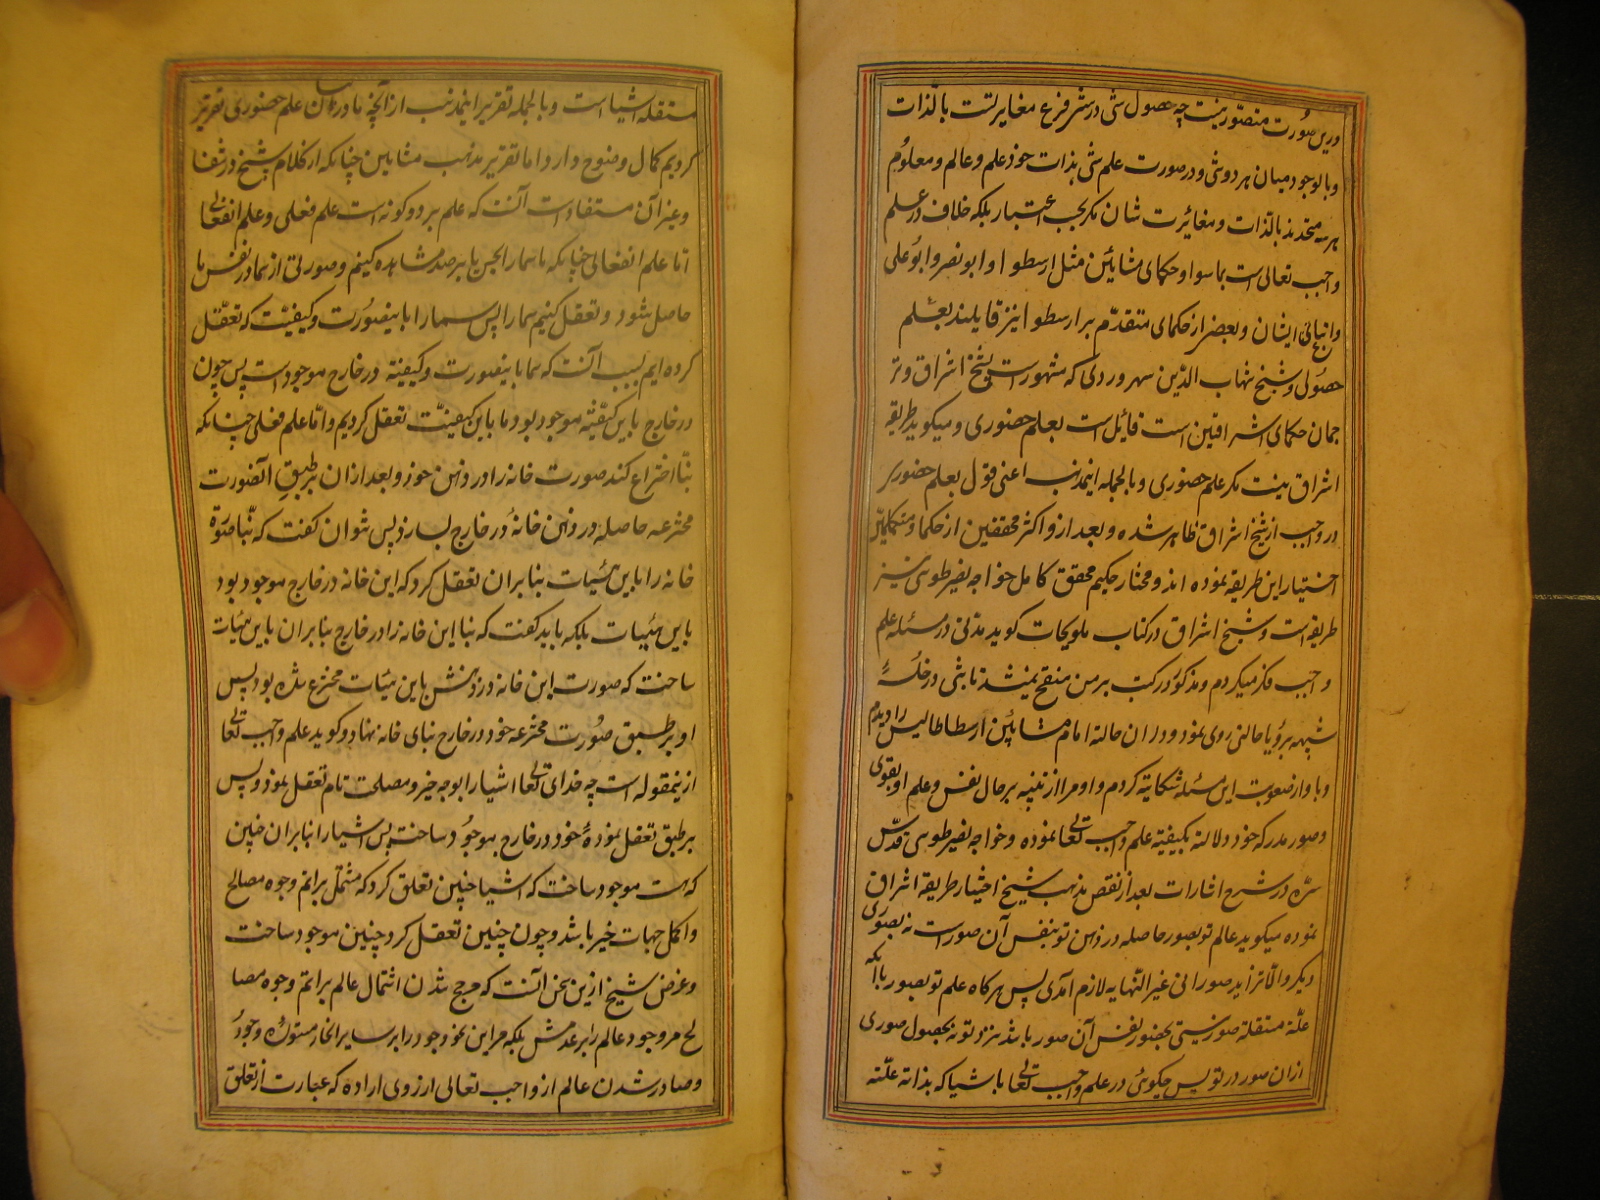 درین صورت متصوّر نیست چه حصول شی در شی فرع مغایرتست بالذات
و بالوجود میان هر دو شی و در صورت علم شی بذات خود علم و عالم و معلوم
هر سه متحدند بالذات و مغایرت شان مکر بحسب اعتبار بلکه خلاف در علم
واجب تعالی است بما سوا و حکمای مشایین مثل ارسطو ا و ابو نصر و ابو علی
و اتباع ایشان و بعضی از حکمای متقدّم بر ارسطو ا نیز قایلند بعلم
حصولی و شیخ شهاب الدّین سهروردی که مشهور است بشیخ اشراق و تر
جمان حکمای اشراقیین است قائل است بعلم حضوری و میکوید طریقه
اشراق نیست مکر علم حضوری و بالجمله اینمذهب اعنی قول بعلم حضوری
در واجب از شیخ اشراق ظاهر شده و بعد ازو اکثر محققین از حکما و متکلمین
اختیار این طریقه نموده اند و مختار حکیم محقق کامل خواجه نصیر طوسی نیز
طریقه است و شیخ اشراق در کتاب تلویحات کوید مدتی در مسئله علم
واجب فکر میکردم و مذکور در کتب بر من منقح نمیشد تا شبی در خلسهٔ
شبیهه برؤیا حالتی روی نمود و در ان حالة امام مشایین ارسطاطالیس را دیدم
و با و از صعوبت این مسئله شکایة کردم و او مرا از تنبیه بر حال نفس و علم او بقوی
و صور مدرکه خود دلالة بکیفیّة علم واجب تعالی نموده و خواجه نصیر طوسی قدّس
سرّه در شرح اشارات بعد از نقض مذهب شیخ اختیار طریقه اشراق
نموده میکوید عالم تو بصور حاصله در ذهن تو بنفس آن صور است نه بصوری
دیکر و الّا تزاید صور الی غیر النّهایه لازم آمدی پس هرکاه علم تو بصور با انکه
علّة مستقلة صور نیستی بحضور نفس آن صور باشد نزد تو نه بحصول صوری
ازان صور در تو پس چکوئی در علم واجب تعالی باشیا که بذاته علّته
مستقله اشیاست و بالجمله تقریر اینمذهب ازانچه ما در بیان علم حضوری تقریر
کردیم کمال وضوح دارد و اما تقریر مذهب مشایین چنانکه از کلام شیخ در شفا
و غیر آن مستفاد است آنست که علم بر دو کونه است علم فعلی و علم انفعالی
امّا علم انفعالی چنانکه ما سما را بحس یا برصد مشاهده کنیم و صورتی از سما در نفس ما
حاصل شود و تعقل کنیم سما را پس سما را باینصورت و کیفیّت که تعقّل
کرده ایم بسبب آنست که سما باینصورت و کیفیّة در خارج موجود است پس چون
در خارج باین کیفیّة موجود بود ما باین کیفیّت تعقل کردیم و امّا علم فعلی چنانکه
بنّا اختراع کند صورت خانه را در ذهن خود و بعد ازان بر طبق آنصورت
مخترعه حاصله در ذهن خانهٔ در خارج بسازد پس نتوان کفت که بنّا صورة
خانه را باین هیئیات بنا بران تعقل کرد که این خانه در خارج موجود بود
باین هیئیات بلکه باید کفت که بنا این خانه را در خارج بنا بران باین هیئیات
ساخت که صورت این خانه در ذهنش باین هیئات مخترع شده بود پس
او بر طبق صورت مخترعه خود در خارج بنای خانه نهاد و کوید علم واجب تعالی
ازینمقوله است چه خدای تعالی اشیا را بوجه خیر و مصلحت تام تعقل نمود و پس
بر طبق تعقل نمودهٔ خود در خارج موجود ساخت پس اشیا را بنا بران چنین
که هست موجود ساخت که اشیا چنین تعلق کرد که مشتمل بر اتم وجوه مصالح
و اکمل جهات خیر باشد و چون چنین تعقل کرد چنین موجود ساخت
و غرض شیخ ازین سخن آنست که مرجح شدن اشتمال عالم بر اتم وجوه مصا
لح مر وجود عالم را بر عدمش بلکه مر این نحو وجود را بر سایر انحا مستوله وجود
و صادر شدن عالم از واجب تعالی از روی اراده که عبارت از تعلق